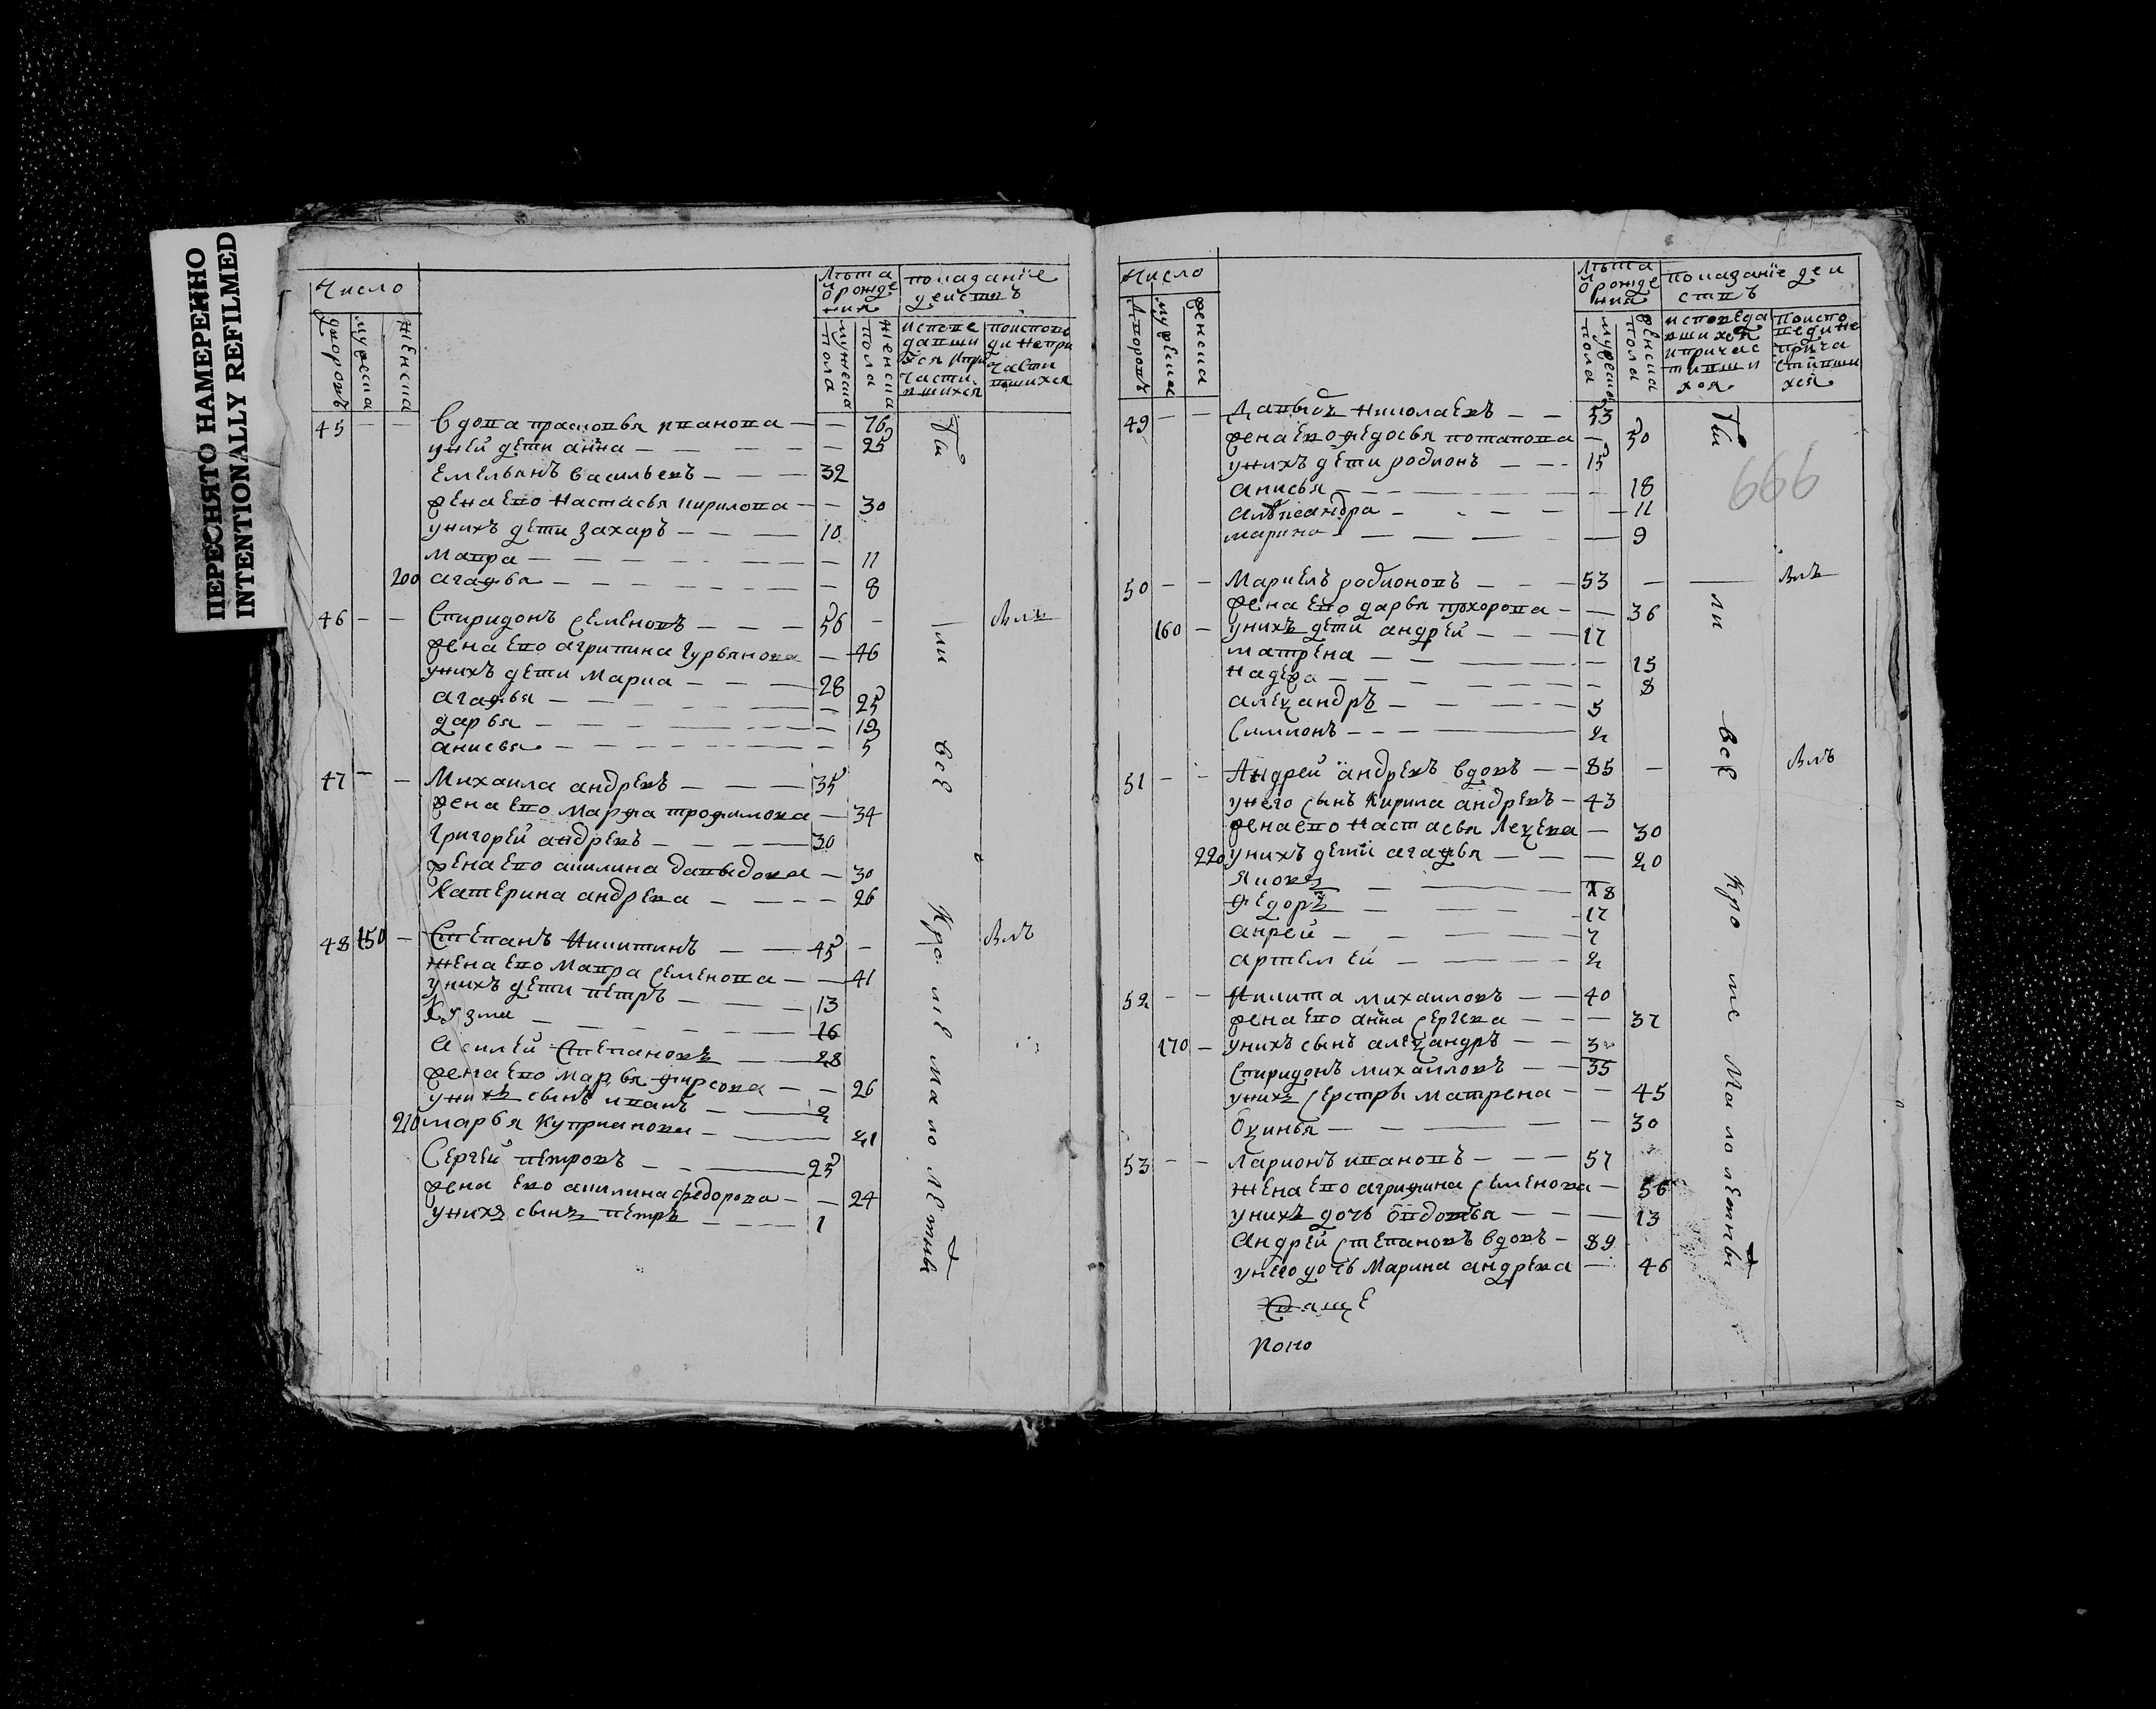 ПЕРЕСНЯТО НАМЕРЕННО
INTENTIONALLY REFILMED
Число
Лѣта
ѿ рожде
ния
показание
действъ
дворовъ
мужеска
женска
мужеска
пола
женска
пола
исповедавши
ся и при
части
вшихся
по испове
ди непри
части
вшихся
45 — — вдова прасковья иванова — — 76
у ней дети анна — 25
Емельянъ васильевъ — 32
жена ево настасья кирилова — 30
у нихъ дети захаръ — 10
мавра — 11
200 агафья — 8
46 — — Спиридонъ семеновъ — 56 —
жена ево агрипина гурьянова — 46
у нихъ дети марка — 28
агафья — 25
дарья — 19
анисья — 5
47 — — Михаила андревъ — 35
жена ево марфа трофимова — 34
григорей андревъ — 30
жена ево акилина давыдова — 30
катерина андрева — 26
48 150 — Степанъ Никитинъ — 45 —
жена ево мавра семенова — 41
у нихъ дети петръ — 13
Кузма — 16
асилей степановъ — 28
жена ево марья фирсова — 26
у нихъ сынъ иванъ — 2
210 марья куприанова — 41
Сергей петровъ — 25
жена ево акилина федорова — 24
у нихъ сынъ петръ — 1
были все кроме малолетныхъ
Число
Лѣта
ѿ рожде
ния
показание деи
ствъ
дворовъ
мужеска
женска
мужеска
пола
женска
пола
исповеда
вшихся
и причас
тивши
хся
по испо
веди не
прича
стивши
хся
666
49 — — давыдъ николаевъ — 53
жена ево федосья потапова — 50
у нихъ дети родионъ — 15
анисья — 18
алѣксандра — 11
марина — 9
50 — — Маркелъ родионовъ — 53 —
жена ево дарья прохорова — 36
160 — у нихъ дети андрей — 17
матрена — 15
надежа — 8
алеѯандръ — 5
Симионъ — 2
51 — — Андрей андревъ вдовъ — 85 —
у него сынъ кирила андревъ — 43
жена ево настасья — 30
220 у нихъ дети агафья — 20
яковъ — 18
федоръ — 17
анрей — 7
артемей — 2
52 — — Никита михаиловъ — 40
жена ево анна сергева — 37
170 — у нихъ сынъ алеѯандръ — 3
Спиридонъ михаиловъ — 35
у нихъ сестры матрена — 45
Оѯинья — 30
53 — — ларионъ ивановъ — 57
жена ево агрипина семенова — 56
у нихъ дочь овдотья — 13
Андрей степановъ вдовъ — 89
у него дочь марина андрева — 46
были все кроме малолетныхъ